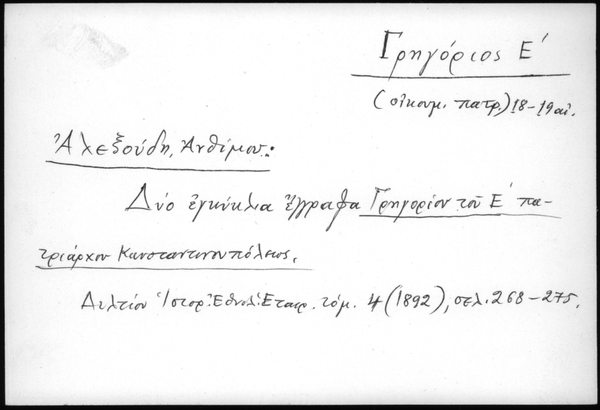 Γρηγόριος Ε΄
(οἰκουμ. πατρ.) 18-19 αἰ.
Ἀλεξούδη, Ἀνθίμου.:
Δύο ἐγκύκλια ἔγγραφα Γρηγορίου τοῦ Ε΄ πα-
τριάρχου Κωνσταντινουπόλεως.
Δελτίον Ἱστορ. Ἐθνολ. Ἑταιρ. τόμ. 4 (1892), σελ. 268-275.